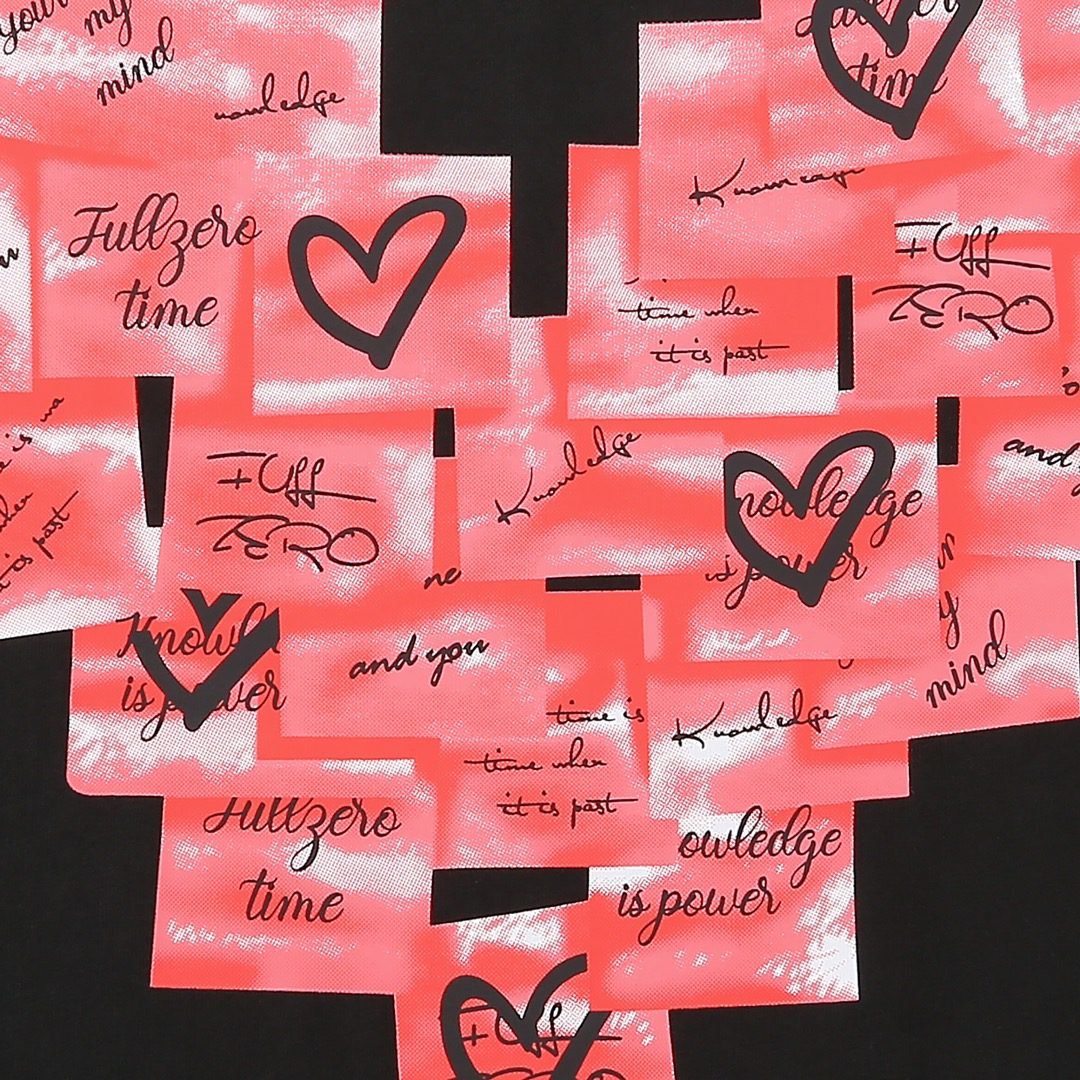 your
my
mind
nowledge
time
Knowledge
Fullzero
time
FUll
ZERO
time when
it is past
is
past
Knowledge
FUll
ZERO
nowledge
is power
and
ne
Knowl
is power
and you
mind
time is
Knowledge
time when
it is past
Fullzero
time
owledge
is power
FUll